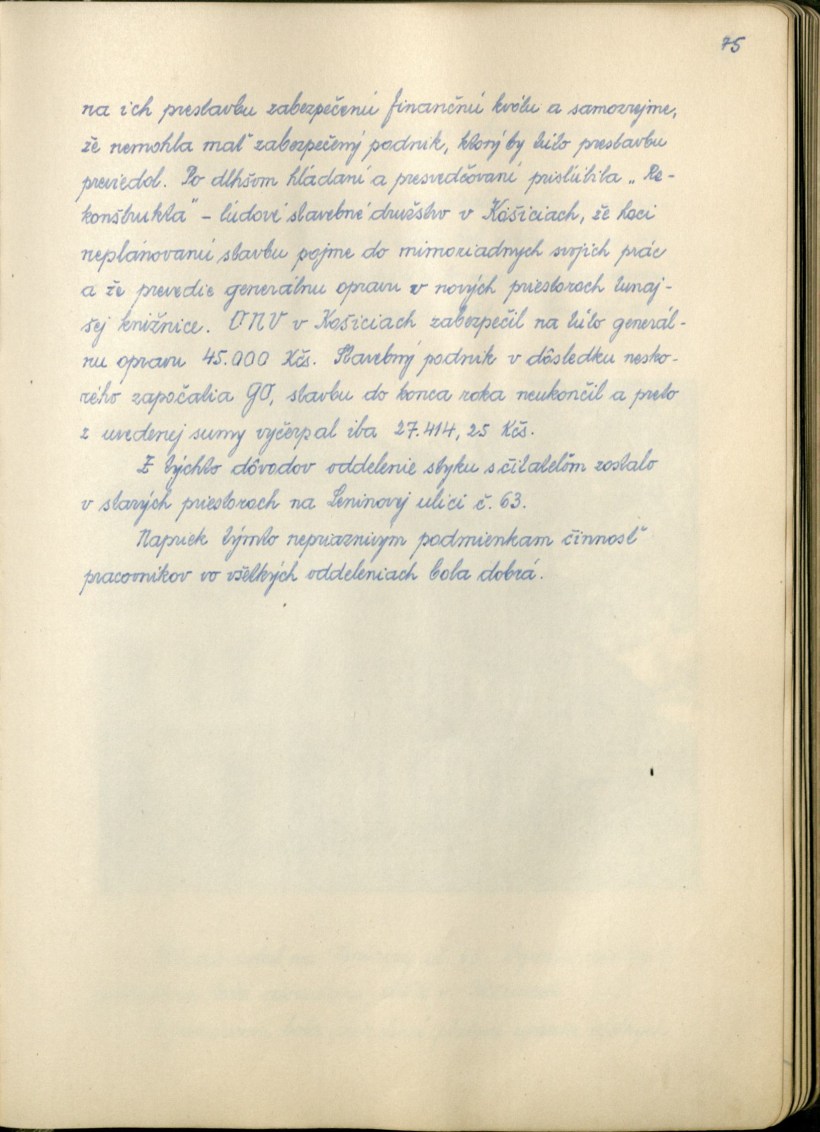 75
na ich prestavbu zabezpečenú finančnú kvótu a samozrejme,
že nemohla mať zabezpečený podnik, ktorý by túto prestavbu
previedol. Po dlhšom hľadaní a presvedčovaní prisľúbila „Re-
konštrukta" - ľudové stavebné družstvo v Košiciach, že hoci
neplánovanú stavbu pojme do mimoriadnych svojich prác
a že prevedie generálnu opravu v nových priestoroch tunaj-
šej knižnice. ONV v Košiciach zabezpečil na túto generál-
nu opravu 45.000 Kčs. Stavebný podnik v dôsledku nesko-
rého započatia GO, stavbu do konca roka neukončil a preto
z uvedenej sumy vyčerpal iba 27.414,25 Kčs.
Z týchto dôvodov oddelenie styku s čitateľom zostalo
v starých priestoroch na Leninovej ulici č. 63.
Napriek týmto nepriaznivým podmienkam činnosť
pracovníkov vo všetkých oddeleniach bola dobrá.